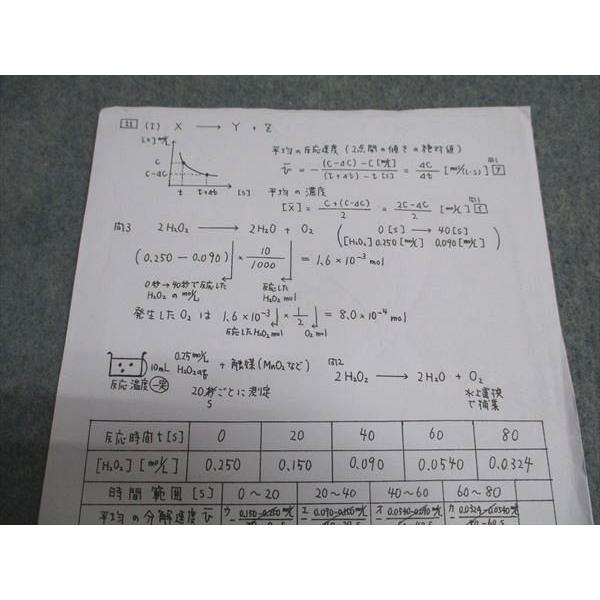 11 (I) X → Y + Z
[X] mol/L
C
C-ΔC
t t+Δt [s]
平均の反応速度 (2点間の傾きの絶対値)
v̄ = - (C-ΔC)-C [mol/L] / (t+Δt)-t [s] = ΔC/Δt [mol/(L·s)] 問1 ア
平均の濃度
[X̄] = C+(C-ΔC) / 2 = 2C-ΔC / 2 [mol/L] 問1 イ
問3 2H₂O₂ → 2H₂O + O₂ ( 0[s] → 40[s]
[H₂O₂] 0.250[mol/L] 0.090[mol/L] )
(0.250 - 0.090) × 10/1000 = 1.6 × 10⁻³ mol
0秒→40秒で反応した
H₂O₂の mol/L
反応した
H₂O₂ mol
発生したO₂は 1.6×10⁻³ × 1/2 = 8.0×10⁻⁴ mol
反応したH₂O₂ mol O₂ mol
10mL 0.25mol/L
H₂O₂aq + 触媒(MnO₂など) 問2
2H₂O₂ → 2H₂O + O₂
反応温度一定 20秒ごとに測定
s
水上置換
で捕集
反応時間 t[s] 0 20 40 60 80
[H₂O₂] [mol/L] 0.250 0.150 0.090 0.0540 0.0324
時間範囲[s] 0～20 20～40 40～60 60～80
平均の分解速度 v̄ ウ エ オ カ